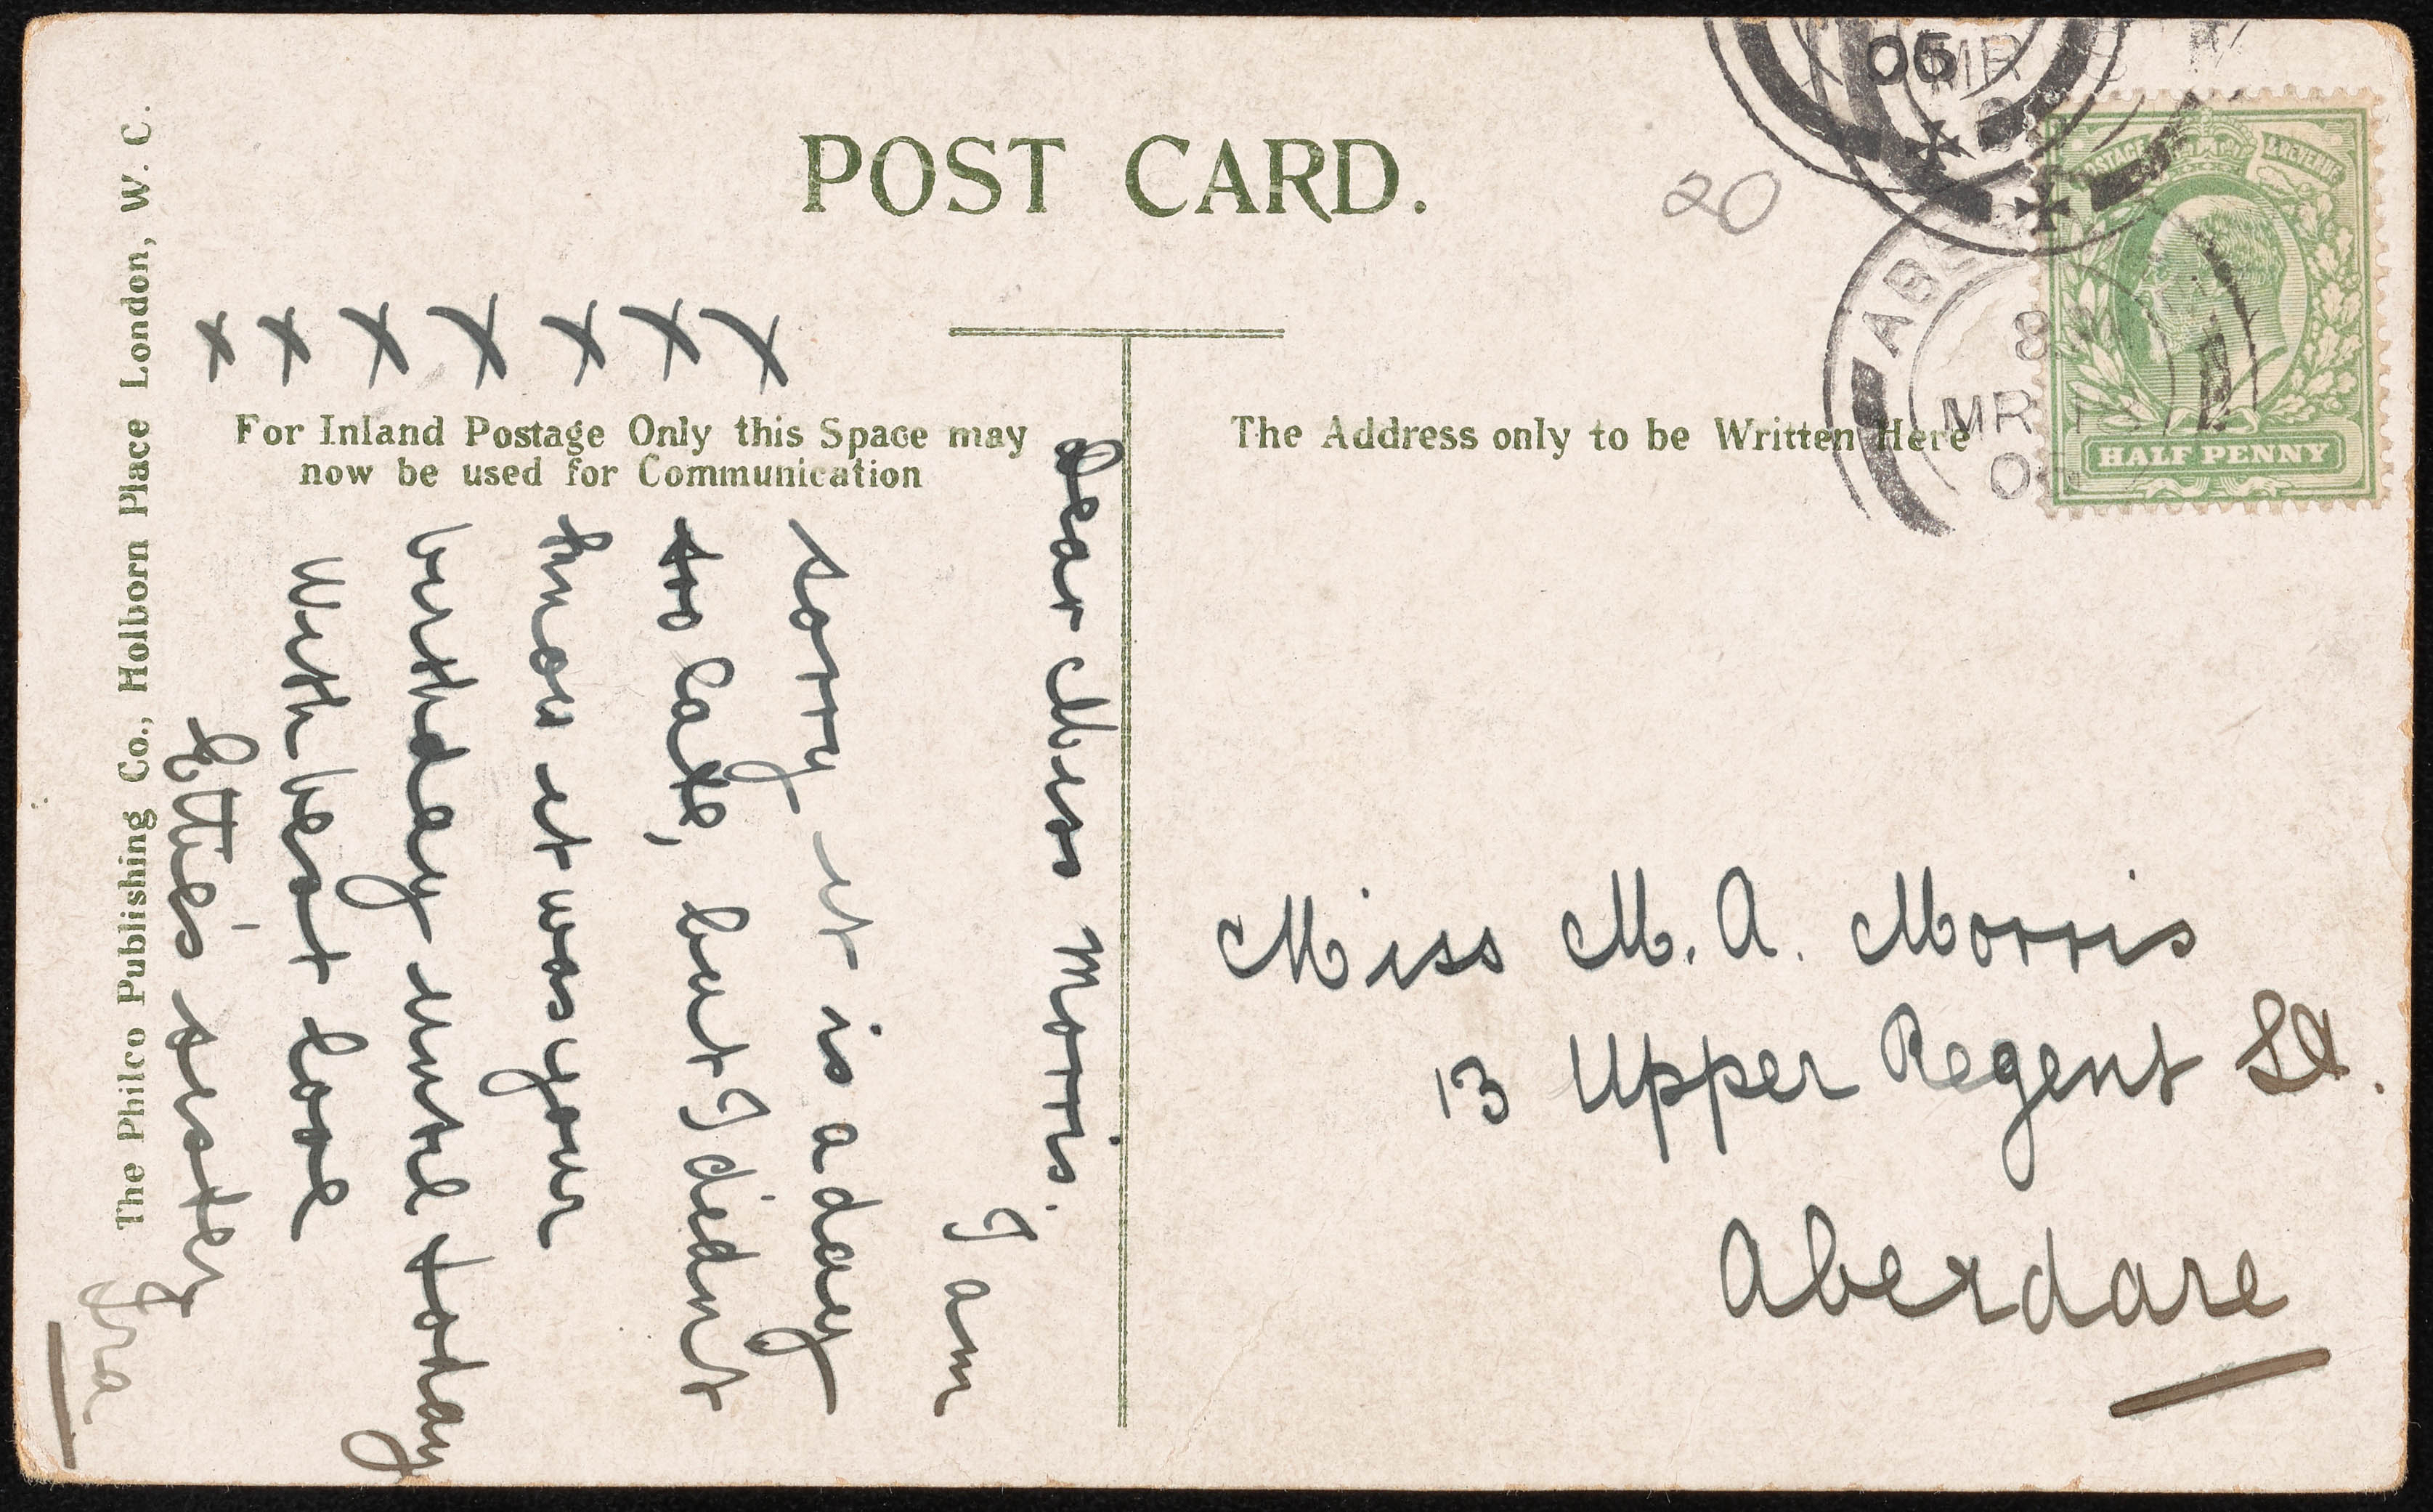 POST CARD.
20
06
MR
ABE
8
MR 18
06
POSTAGE & REVENUE
HALF PENNY
The Philco Publishing Co., Holborn Place London, W. C.
x x x x x x x
For Inland Postage Only this Space may
now be used for Communication
The Address only to be Written Here
Dear Miss Morris.
I am
sorry it is a day
too late, but I didnt
know it was your
birthday until today
With best love
Ettie's sister
Ira
Miss M. A. Morris
13 Upper Regent St.
Aberdare